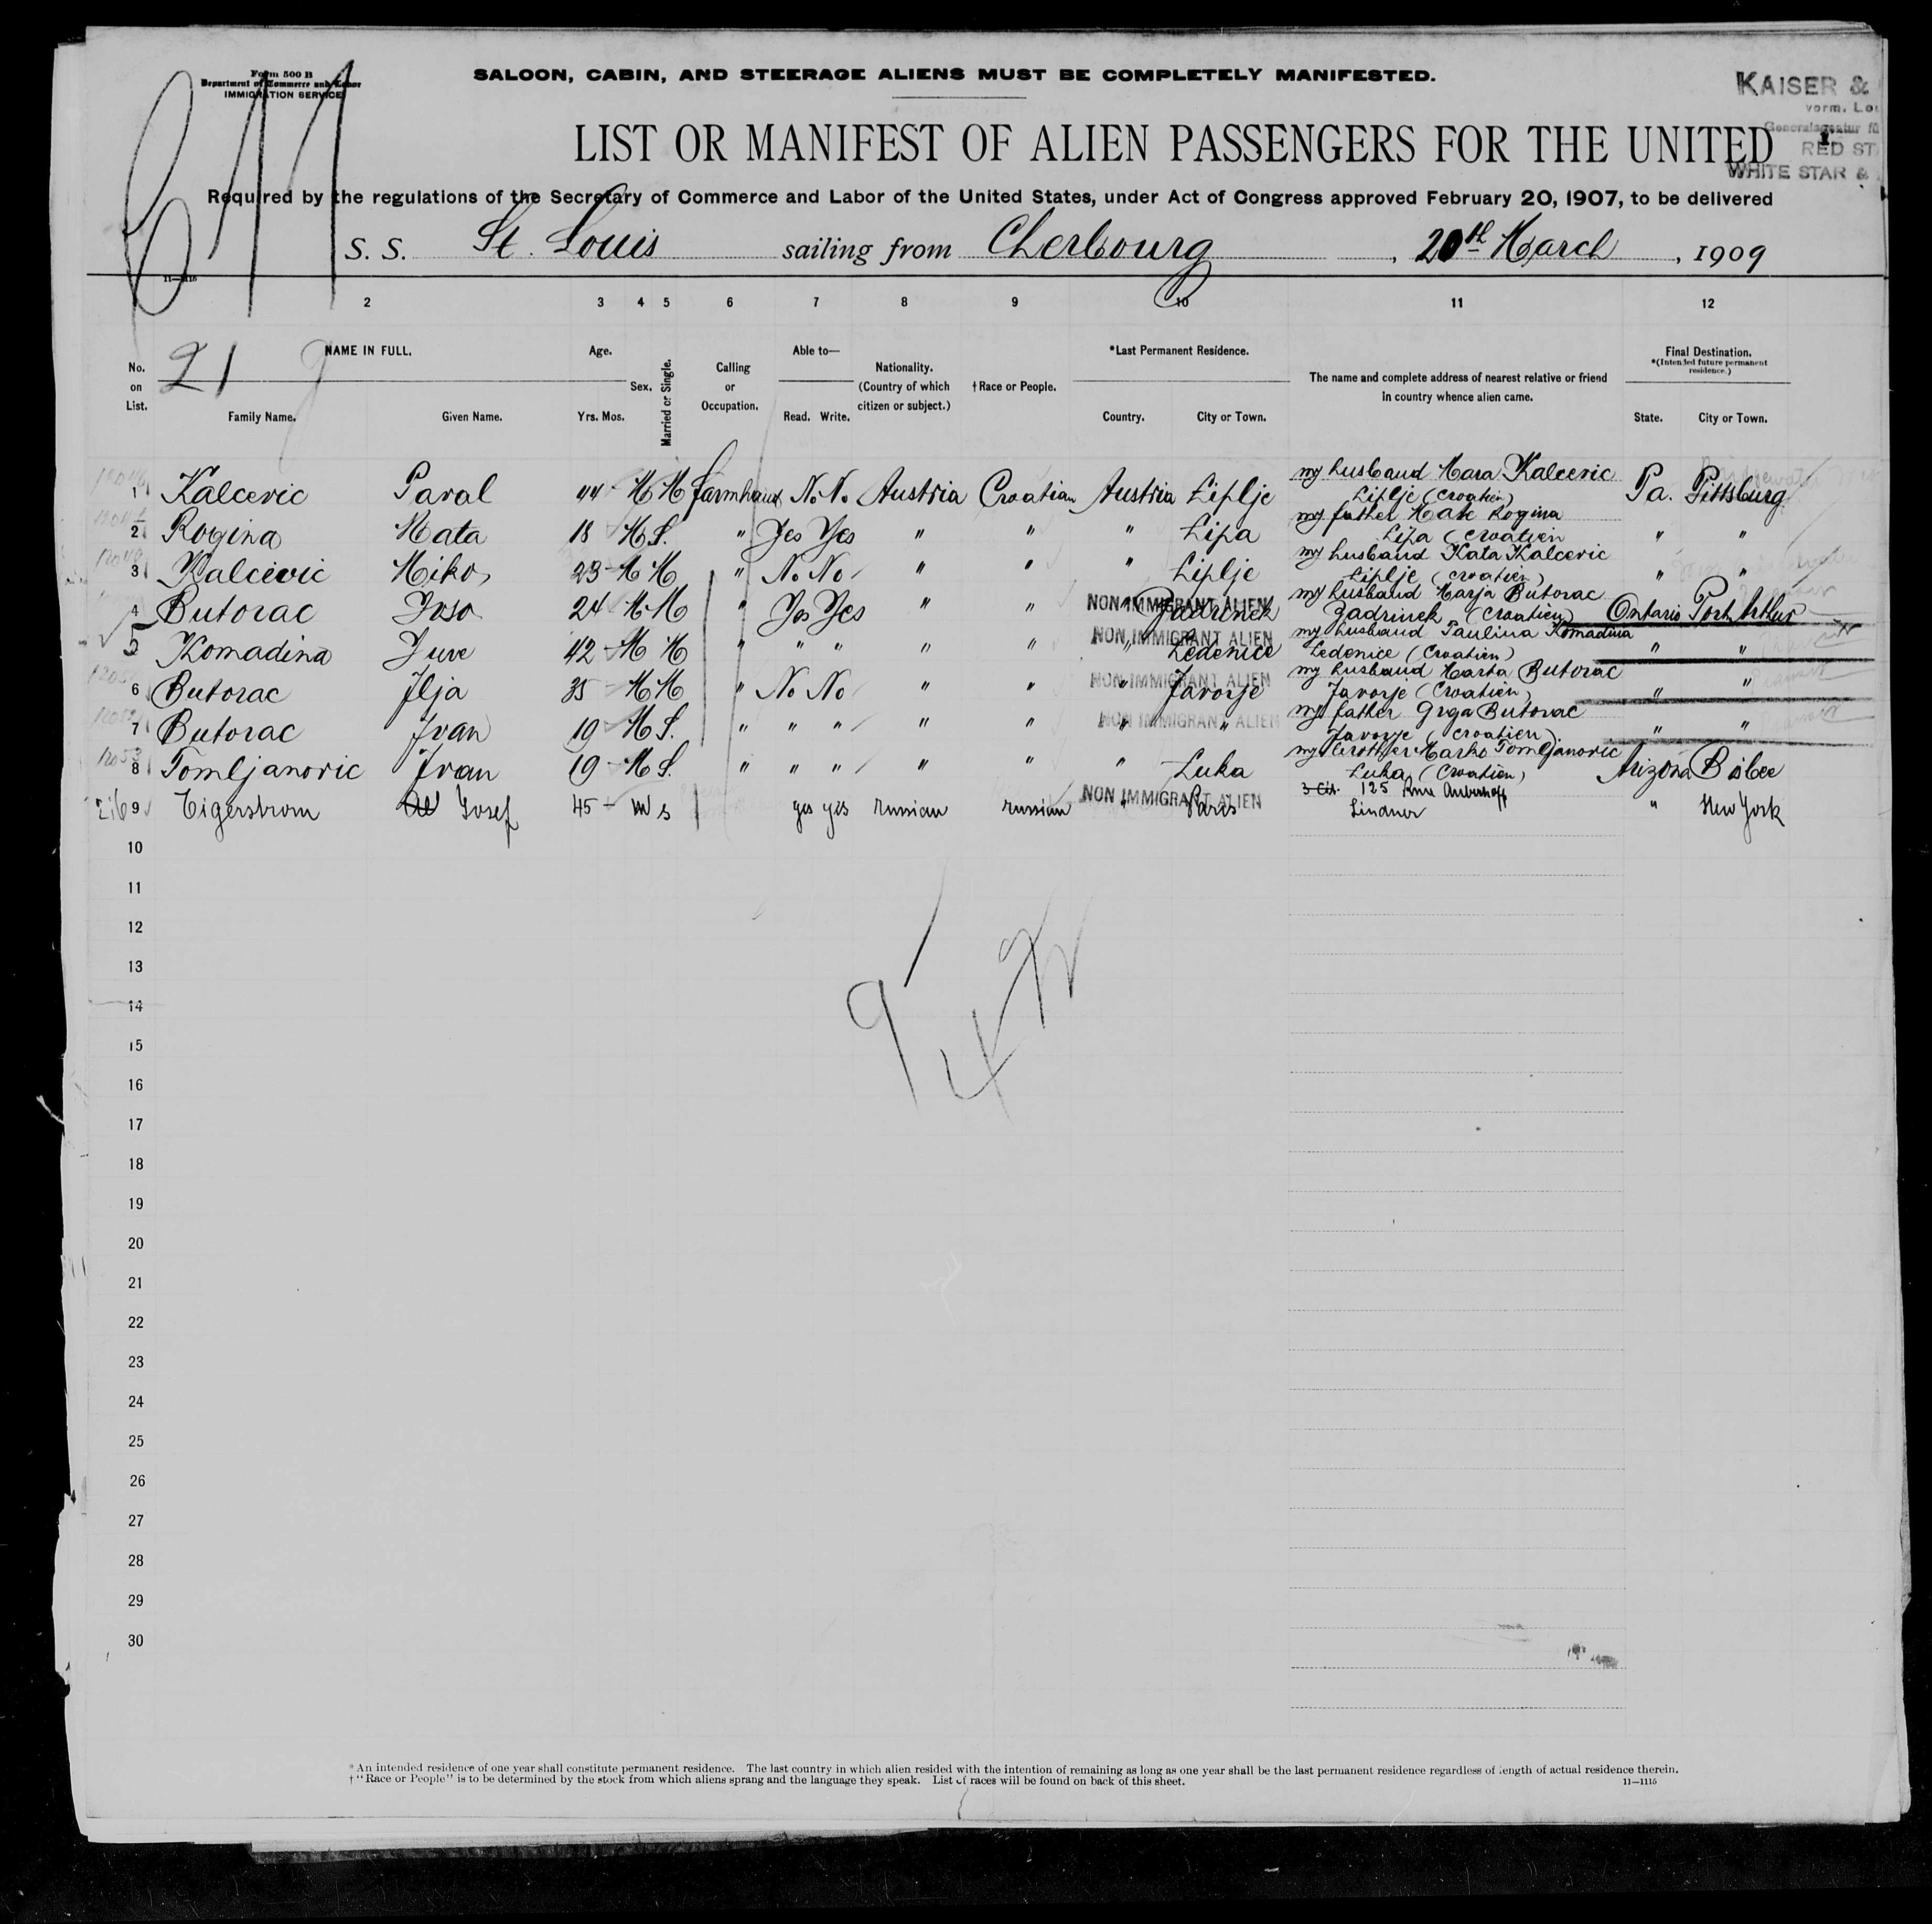 Form 500 B
Department of Commerce and Labor
IMMIGRATION SERVICE
SALOON, CABIN, AND STEERAGE ALIENS MUST BE COMPLETELY MANIFESTED.
KAISER &
vorm. Lou
Generalagentur fü
RED ST
WHITE STAR &
LIST OR MANIFEST OF ALIEN PASSENGERS FOR THE UNITED
Required by the regulations of the Secretary of Commerce and Labor of the United States, under Act of Congress approved February 20, 1907, to be delivered
S. S. St. Louis sailing from Cherbourg, 20th March, 1909
11—1115
2 3 4 5 6 7 8 9 10 11 12
21
No. on List.
NAME IN FULL.
Family Name. Given Name.
Age.
Yrs. Mos.
Sex.
Married or Single.
Calling or Occupation.
Able to—
Read. Write.
Nationality.
(Country of which citizen or subject.)
†Race or People.
*Last Permanent Residence.
Country. City or Town.
The name and complete address of nearest relative or friend in country whence alien came.
Final Destination.
*(Intended future permanent residence.)
State. City or Town.
1 Kalcevic Paval 44 M M farmhand No No Austria Croatian Austria Liplje my husband Mara Kalcevic Liplje (Croatien) Pa. Pittsburg
2 Rogina Mata 18 M S. " Yes Yes " " " Lipa my father Mate Rogina Lipa (Croatien " "
3 Kalcevic Miko 23 M M " No No " " " Liplje my husband Kata Kalcevic Liplje (Croatien) " "
4 Butorac Ivso 24 M M " Yes Yes " " NON IMMIGRANT ALIEN Zadrinek my husband Marja Butorac Zadrinek (Croatien) Ontario Port Arthur
5 Komadina Jure 42 M M " " " " " NON IMMIGRANT ALIEN " Ledenice my husband Paulina Komadina Ledenice (Croatien) " "
6 Butorac Ilja 35 M M " No No " " NON IMMIGRANT ALIEN " Javorje my husband Marta Butorac Javorje (Croatien) " "
7 Butorac Ivan 19 M S. " " " " " NON IMMIGRANT ALIEN " " my father Grga Butorac Javorje (Croatien). " "
8 Tomljanovic Ivan 19 M S. " " " " " " Luka my brother Marko Tomljanovic Luka (Croatien) Arizona Bisbee
9 Tigerstrom Josef 45 m s yes yes russian russian NON IMMIGRANT ALIEN " Paris 125 Lindner " New York
10
11
12
13
14
15
16
17
18
19
20
21
22
23
24
25
26
27
28
29
30
*An intended residence of one year shall constitute permanent residence. The last country in which alien resided with the intention of remaining as long as one year shall be the last permanent residence regardless of length of actual residence therein.
†"Race or People" is to be determined by the stock from which aliens sprang and the language they speak. List of races will be found on back of this sheet.
11—1115